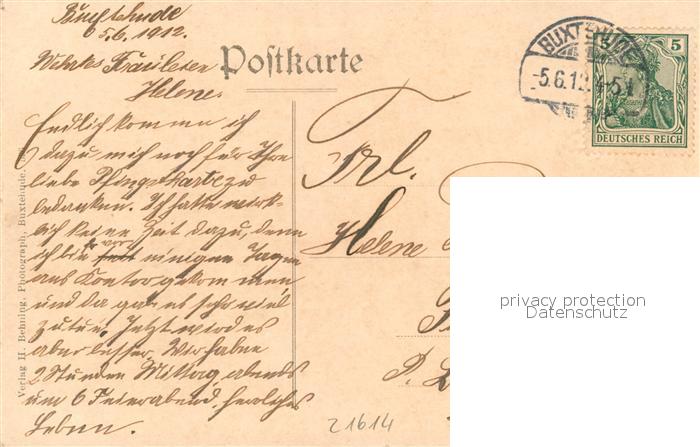 Buxtehude
5.6.1912.
Wertes Fräulein
Helene.
Endlich komme ich
dazu mich noch für Ihre
liebe Pfingstkarte zu
bedanken. Ich hatte wirk-
lich keine Zeit dazu, denn
ich bin vor einigen Tagen
ans Kontor gekommen
und da gab es sehr viel
zu tun. Jetzt wird es
aber besser. Wir haben
2 Stunden Mittag, abends
um 6 Feierabend. herrliches
Leben.
Postkarte
Verlag H. Behning, Photograph, Buxtehude.
BUXTEHUDE
-5.6.12.
5
DEUTSCHES REICH
Frl.
Helene
P.
privacy protection
Datenschutz
21614